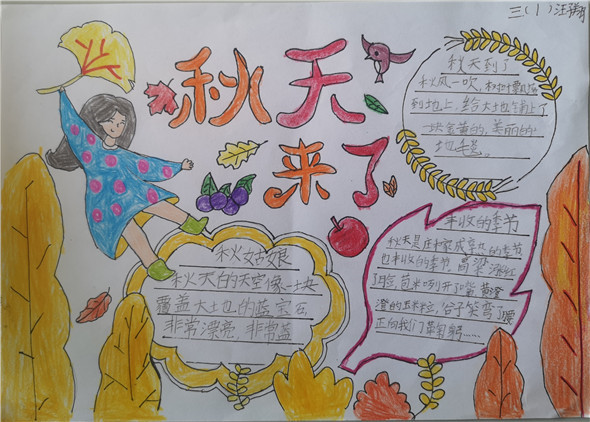 三(1)汪翔
秋天
来了
秋天到了
秋风一吹,树叶飘落
到地上,给大地铺上了
一块金黄的,美丽的
地毯。
秋姑娘
秋天的天空像一块
覆盖大地的蓝宝石,
非常漂亮,非常蓝
丰收的季节
秋天是庄稼成熟的季节
也丰收的季节,高粱涨红
了脸,玉米咧开了嘴 黄澄
澄的玉米粒,谷子笑弯了腰
正向我们鞠躬……